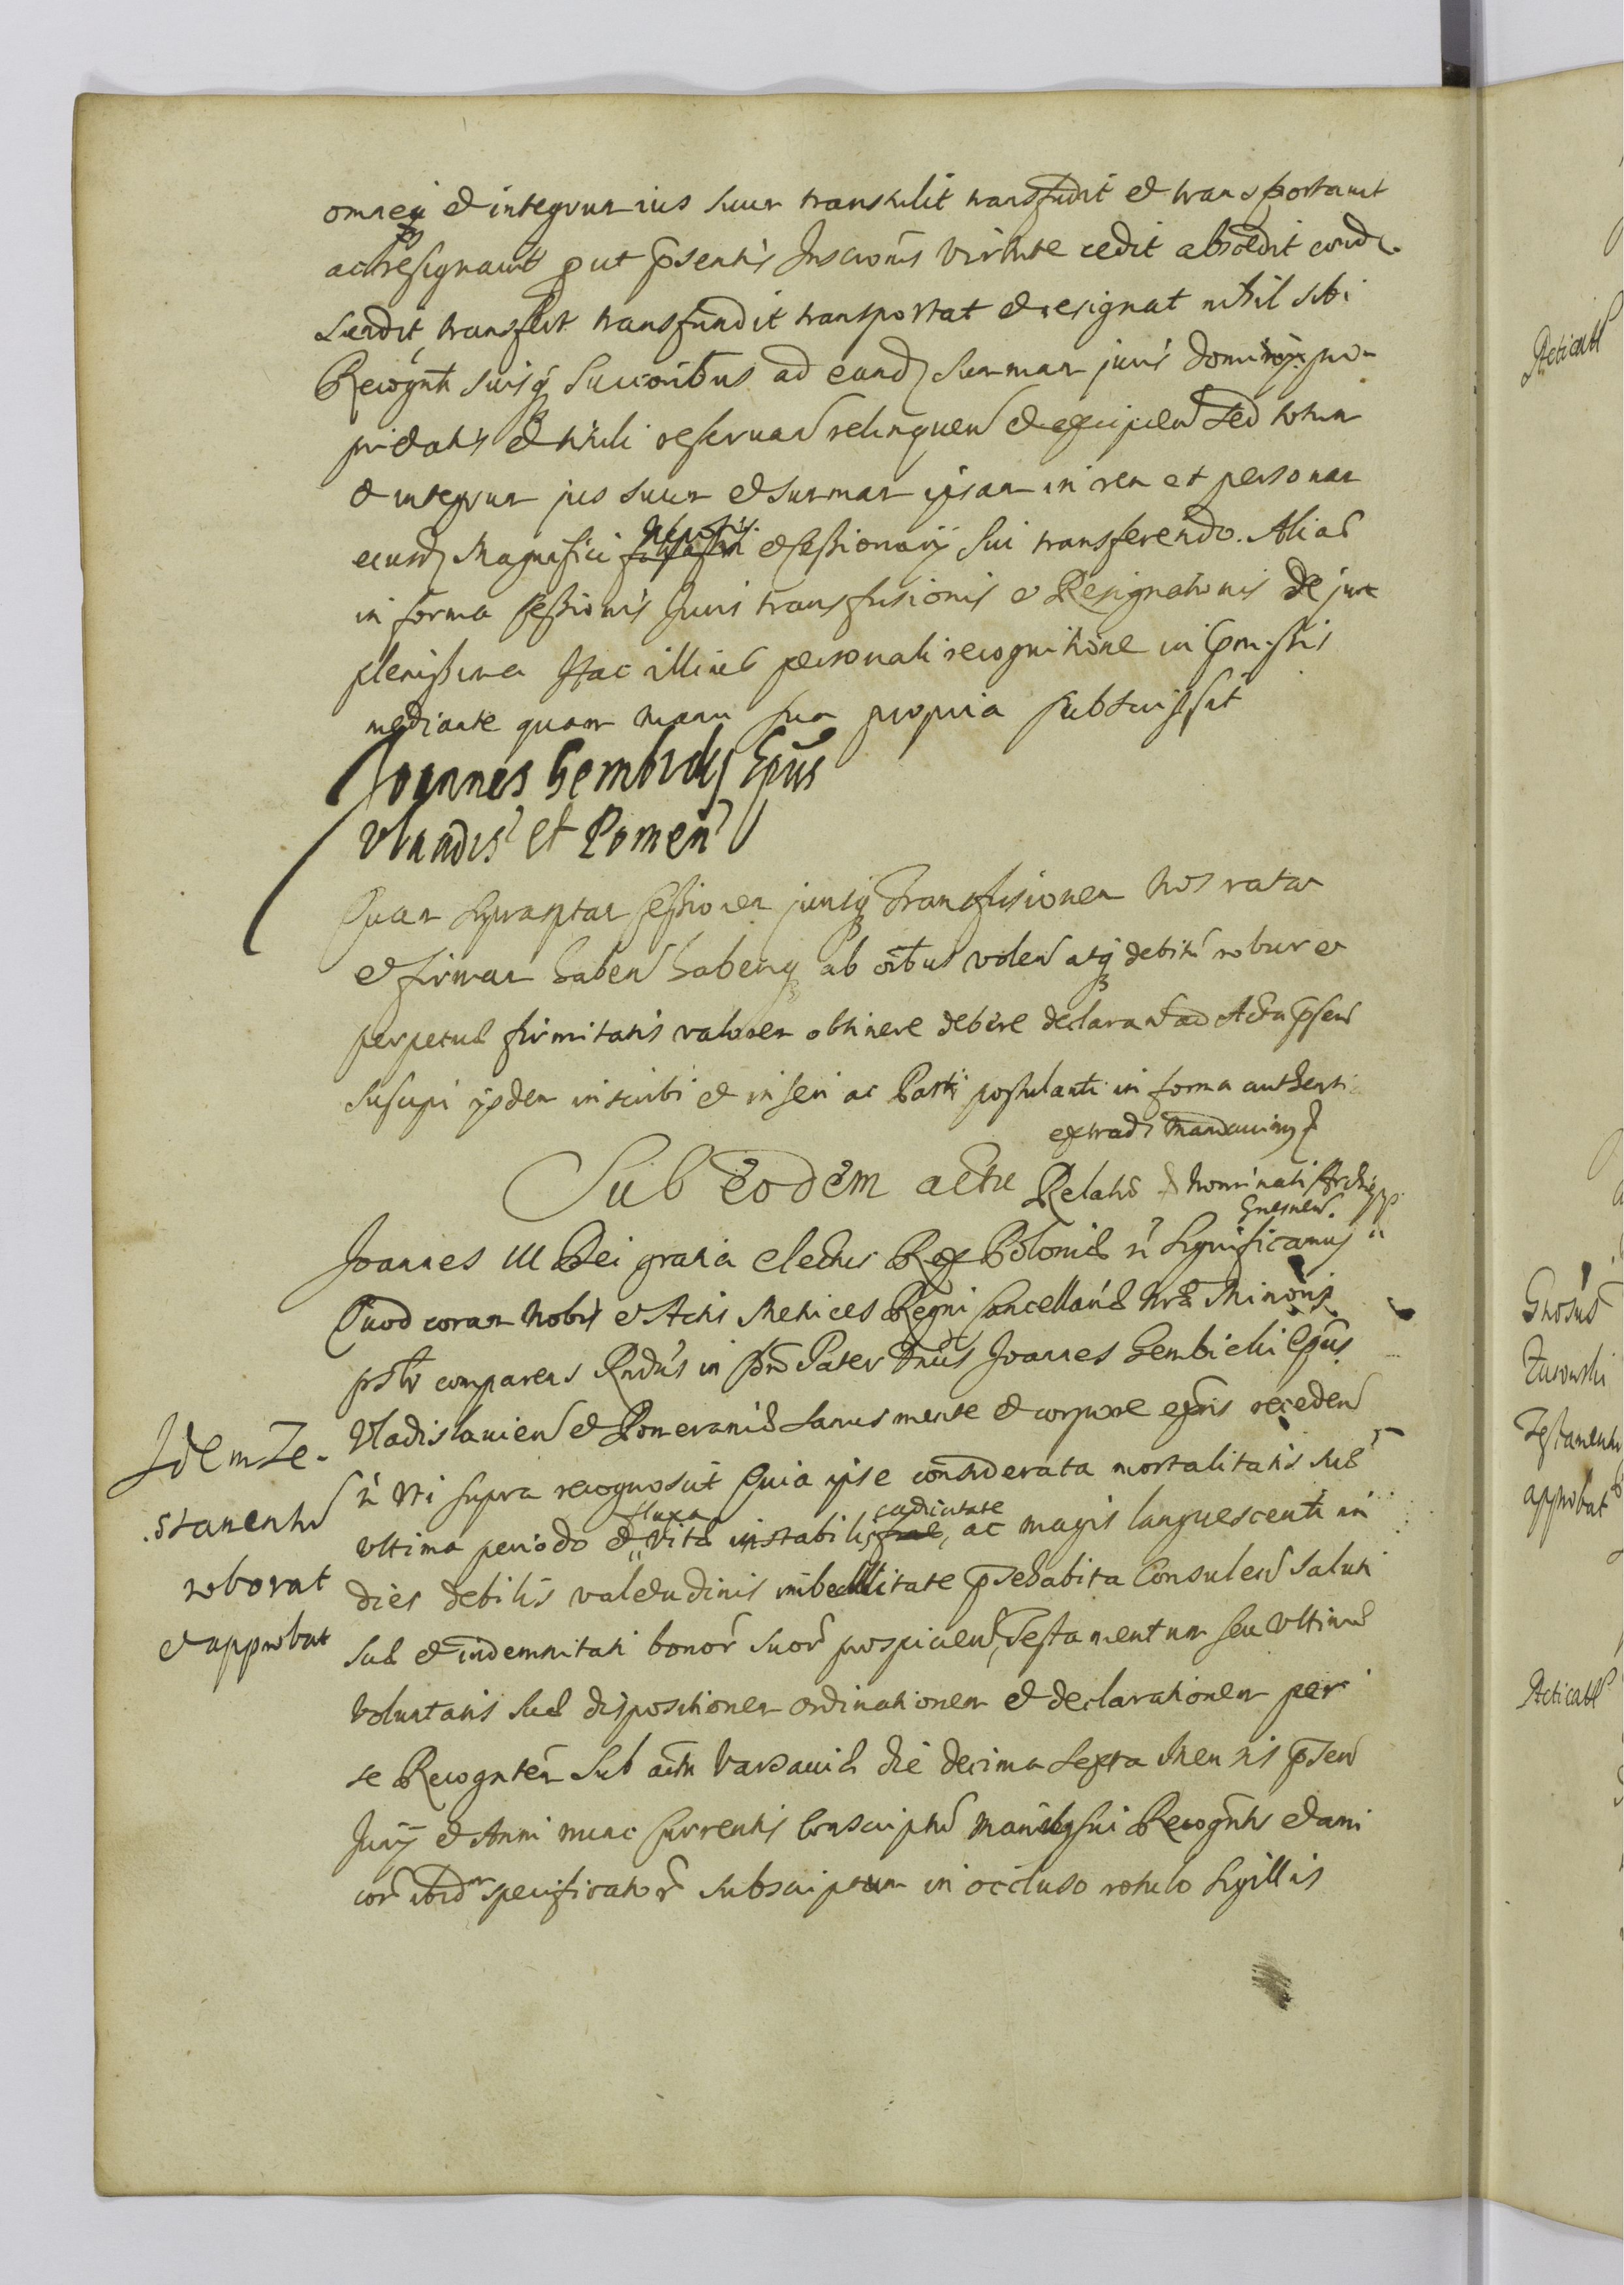 omnem et integrum ius suum transtulit transfudit et transportavit
ac resignavit put psentis Inscronis virtute cedit abscedit conde-
scendit, transfert transfundit transportat et resignat nihil sibi
Recognti suisq Succoribus ad eand summam juris dominij pro-
prietatis et tituli reservan relinquen et excipien sed totum
et integrum jus suum et summam ipsam in rem et personam
eiusd Magnifici Nepotis et Cessionarij sui transferendo. Alias
in forma Cessionis Juris transfusionis et Resignationis de jure
plenissima Hac illius personali recognitione in pmissis
mediante quam manu sua propria subscripsit
Joannes Gembicky Epus
Vladis et Pomen
Quam suprascriptam Cessionem jurisq transfusionem Nos ratam
et firmam haben haberiq ab oibus volen atq debitu robur et
perpetuae firmitatis valorem obtinere debere declaran ad Acta psen
suscipi ijsdem inscribi et inseri ac Parti postulanti in forma authenti
extradi mandavimus
Sub eodem actu Relatio nominati Archiepp
Gnesnen.
Joannes III Dei gratia electus Rex Poloniae Significamus
Quod coram Nobis et Actis Metrices Regni Cancellariae nrae Minoris
psltr comparens Rndus in Xto Pater Dnus Joannes Gembicki Epus
Vladislavien et Pomeraniae sanus mente et corpore expris receden
uti supra recognoscit Quia ipse considerata mortalitatis suae
ultima periodo et vitae fluxa instabilis caducitate, ac magis languescenti in
dies debilis valetudinis imbecillitate psehabita Consulen saluti
suae et indemnitati bonor suor prospicien, Testamentum seu ultimae
voluntatis suae dispositionem ordinationem et declarationem per
se Recognten sub actu Varsaviae die decima sexta mensis psen
Junij et Anni nunc Currentis conscriptu manuq sui Recogntis et ami
cor ibid specificator subscriptum in occluso rotulo sigillis
Idem Te-
stamentu
roborat
et approbat
Acticatt
Gnosus
Testamentu
approbat
Acticatt